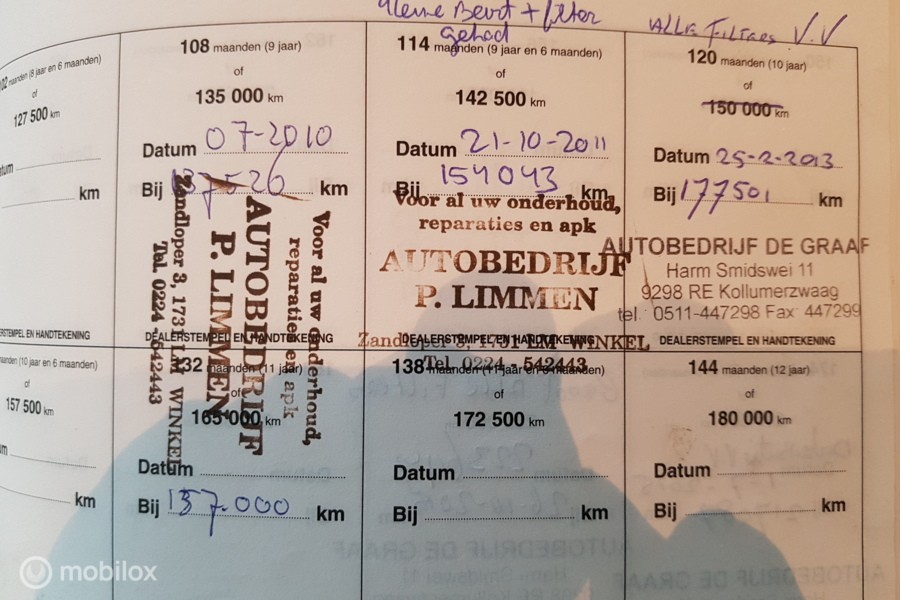 kleine Beurt + filter
gehad
Alle Filters V.V
102 maanden (8 jaar en 6 maanden)
127 500 km
km
108 maanden (9 jaar)
of
135 000 km
Datum 07-2010
Bij 137526 km
Voor al uw onderhoud,
reparaties en apk
AUTOBEDRIJF
P. LIMMEN
Zandloper 3, 1731 LM WINKEL
Tel. 0224 - 542443
DEALERSTEMPEL EN HANDTEKENING
114 maanden (9 jaar en 6 maanden)
of
142 500 km
Datum 21-10-2011
Bij 154043 km
Voor al uw onderhoud,
reparaties en apk
AUTOBEDRIJF
P. LIMMEN
Zandloper 3, 1731 LM WINKEL
Tel. 0224 - 542443
DEALERSTEMPEL EN HANDTEKENING
120 maanden (10 jaar)
of
150 000 km
Datum 25-2-2013
Bij 177501 km
AUTOBEDRIJF DE GRAAF
Harm Smidswei 11
9298 RE Kollumerzwaag
tel : 0511-447298 Fax: 447299
DEALERSTEMPEL EN HANDTEKENING
maanden (10 jaar en 6 maanden)
of
157 500 km
km
132 maanden (11 jaar)
of
165 000 km
Datum
Bij 137.000 km
138 maanden (11 jaar en 6 maanden)
of
172 500 km
Datum
Bij km
144 maanden (12 jaar)
of
180 000 km
Datum
Bij km
mobilox